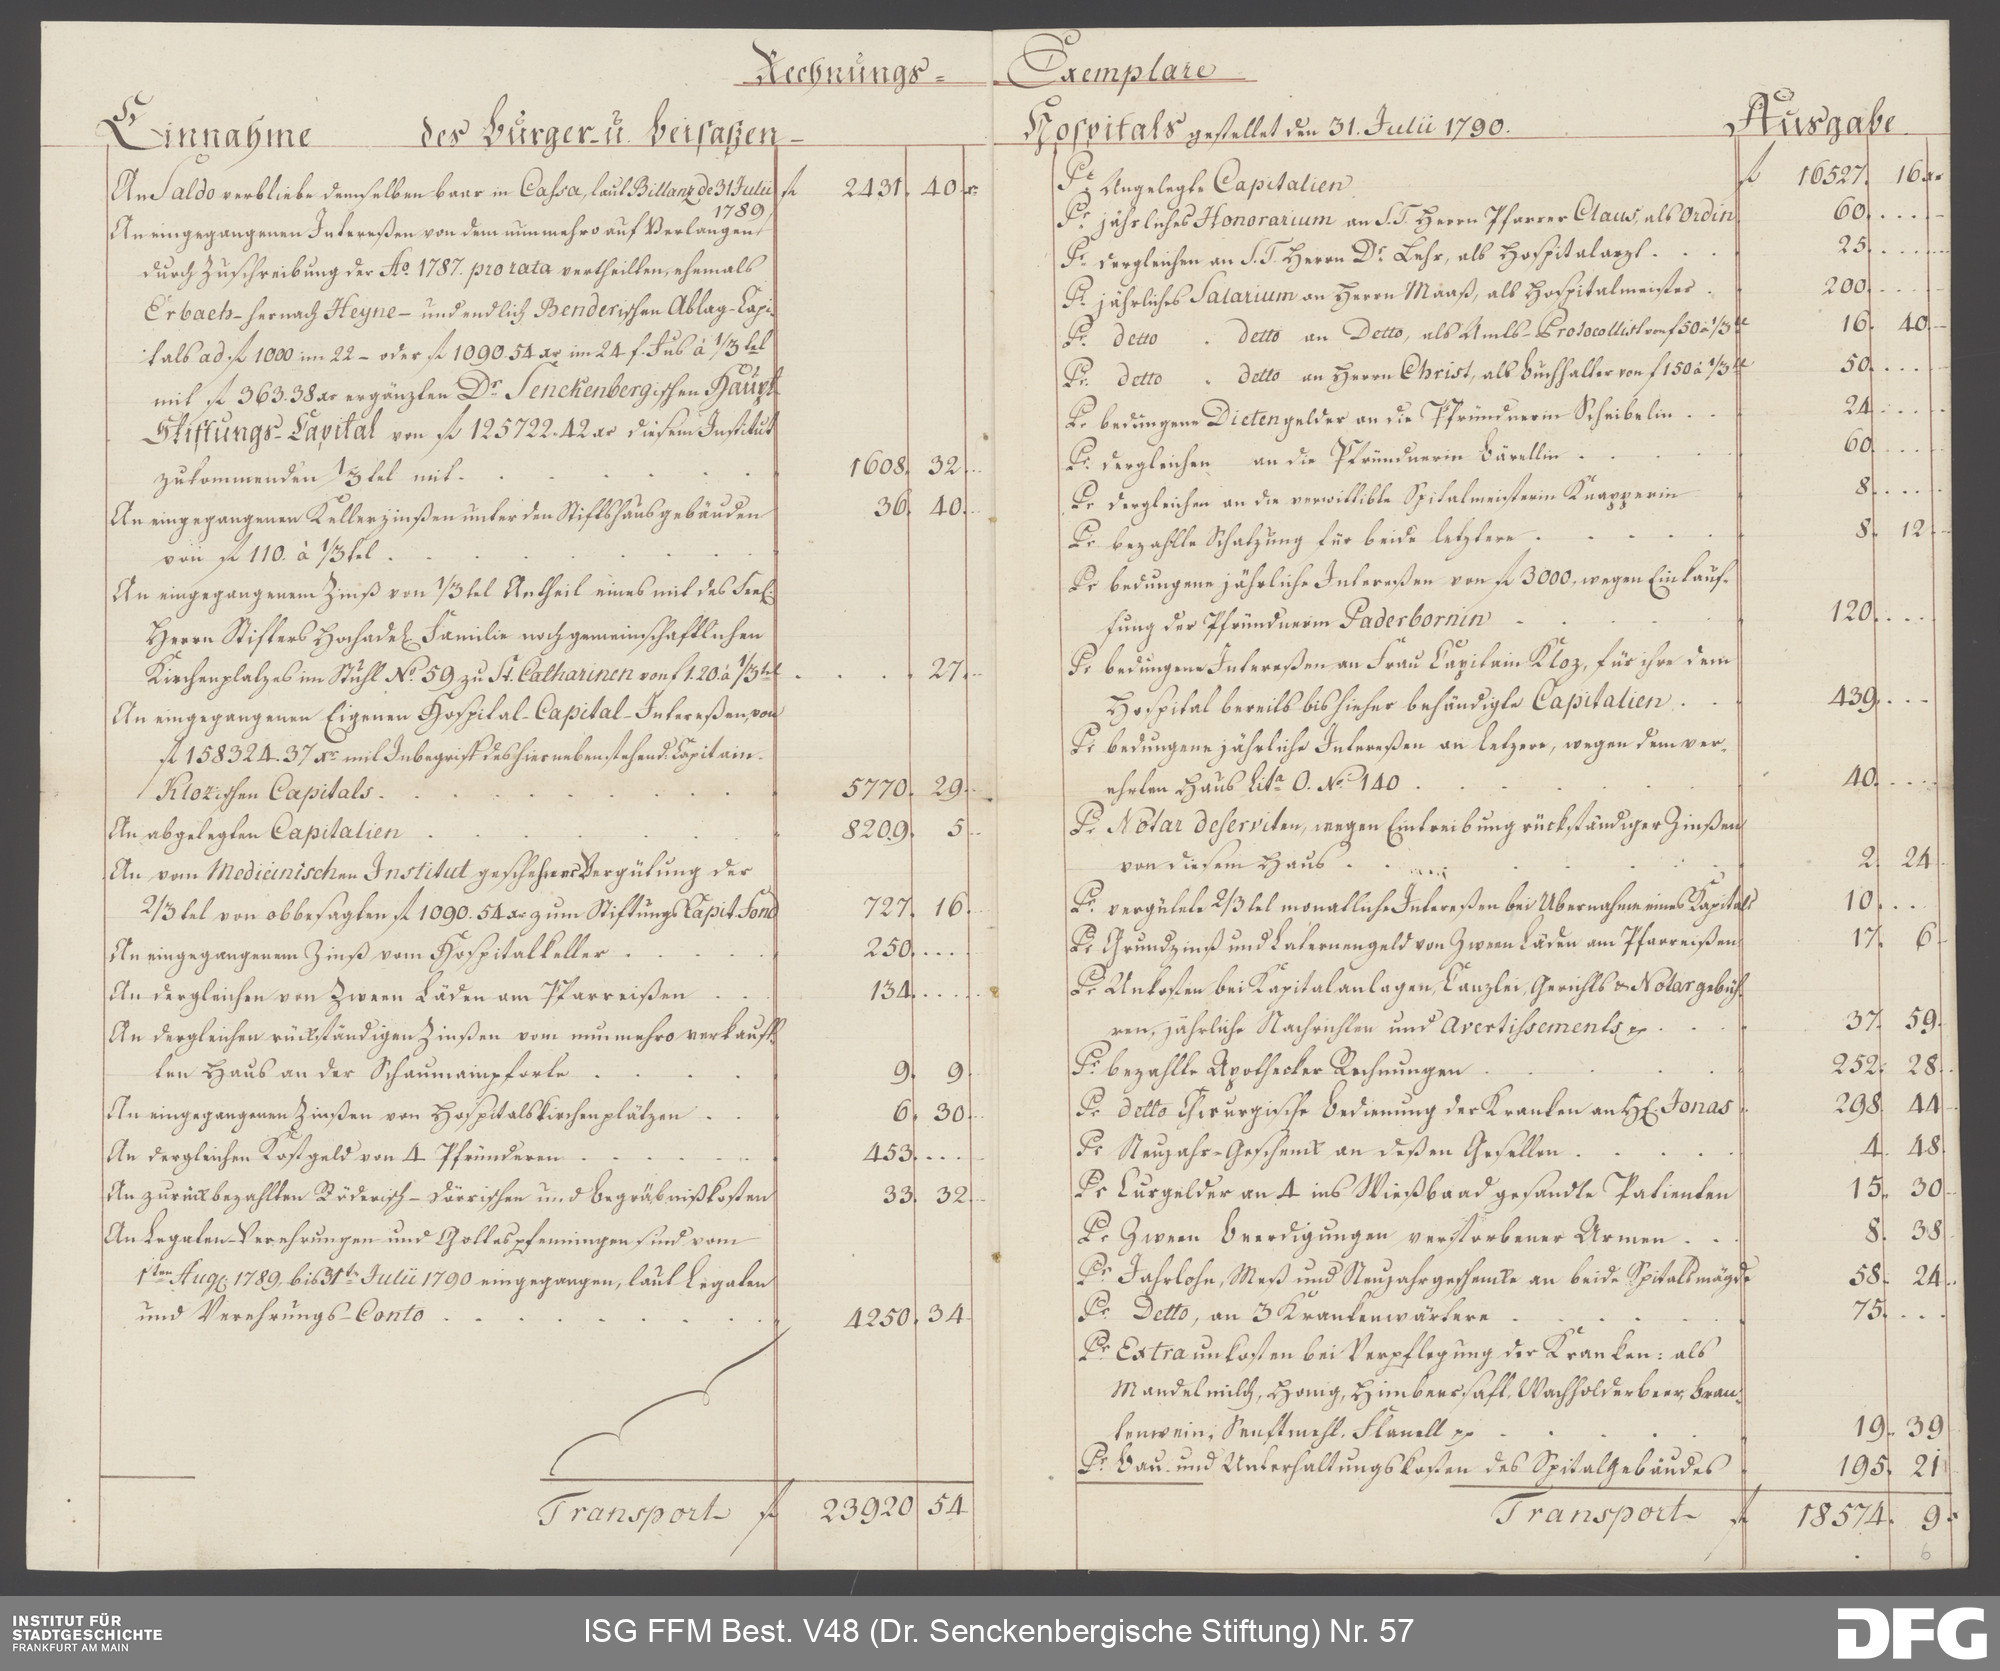 Rechnungs-
Einnahme des Burger- u. beisaßen-
An Saldo verbliebe demselben baar in Cassa, laut Billanz de 31 Julii 1789 f 2431. 40 xr
An eingegangenen Intereßen von dem nunmehro auf Verlangen
durch Zuschreibung der Ao. 1787. pro rata vertheilten, ehemals
Erbach- hernach Heyne- und endlich Benderischen Ablag-Capi-
tals ad f 1000 im 22 - oder f 1090.54 xr im 24 f. Fus à 1/3 tel
mit f 363.38 xr ergänzten Dr. Senckenbergischen Haupt
Stiftungs-Capital von f 125722.42 xr diesem Institut
zukommenden 1/3 tel mit . 1608. 32
An eingegangenen Kellerzinßen unter den Stiftshausgebäuden 36. 40.
von f 110. à 1/3 tel .
An eingegangenem Zinß von 1/3 tel Antheil eines mit des Seel.
Herrn Stifters Hochadel. Familie noch gemeinschaftlichen
Kirchenplatzes im Stuhl No. 59 zu St. Catharinen von f 1.20. à 1/3 tel . 27.
An eingegangenen Eigenen Hospital-Capital-Intereßen von
f 158324.37 xr mit Inbegriff des hiernebenstehend. Capitain-
Klozischen Capitals . 5770. 29
An abgelegten Capitalien . 8209. 5
An vom Medicinischen Institut geschehener Vergütung der
2/3 tel von obbesagten f 1090.54 xr zum Stiftungs Capit. Fond 727. 16.
An eingegangenem Zinß vom Hospitalkeller . 250. . . .
An dergleichen von Zween Läden am Pfarreißen . 134. . . .
An dergleichen rückständigen Zinßen vom nunmehro verkauf-
ten Haus an der Schaumainpforte . 9. 9
An eingegangenen Zinßen von Hospitalskirchenplätzen . 6. 30
An dergleichen Kostgeld von 4 Pfründeren . 453. . . .
An zurückbezahlten Röderisch- Dörrischen und begräbnißkosten 33. 32
An Legaten-Verehrungen und Gottespfenningen sind vom
1ten Aug. 1789. bis 31te Julii 1790 eingegangen, laut Legaten
und Verehrungs-Conto . 4250. 34
Transport f 23920 54
Exemplare
Hospitals gestellet den 31. Julii 1790. Ausgabe
Pr Angelegte Capitalien f 16527. 16 xr
Pr. jährliches Honorarium an S.T. Herrn Pfarrer Claus, als Ordin 60. . . .
Pr. dergleichen an S.T. Herrn Dr. Lehr, als Hospitalarzt . 25. . . .
Pr. jährliches Salarium an Herrn Maaß, als Hospitalmeister . 200. . . .
Pr. detto . detto an Detto, als Amts-Protocollist von f 50 à 1/3 tl 16. 40
Pr. detto . detto an Herrn Christ, als Buchhalter von f 150 à 1/3 tl 50. . . .
Pr bedungene Dietengelder an die Pfründnerin Scheibelin . 24. . . .
Pr. dergleichen an die Pfründnerin Bärellin . 60. . . .
Pr dergleichen an die verwittibte Spitalmeisterin Knapperin 8. . . .
Pr bezahlte Schatzung für beide letztere . 8. 12
Pr bedungene jährliche Intereßen von f 3000. wegen Einkauf-
fung der Pfründnerin Paderbornin . 120. . . .
Pr bedungene Intereßen an Frau Capitain Kloz, für ihre dem
Hospital bereits bishieher behändigte Capitalien . 439. . . .
Pr bedungene jährliche Intereßen an letzere, wegen dem ver-
ehrten Haus Lita. O. No. 140 . 40. . . .
Pr Notar deserviten, wegen Eintreibung rückständiger Zinßen
von diesem Haus . 2. 24
Pr. vergütete 2/3 tel monatliche Intereßen bei Ubernahme eines Kapitals 10. . .
Pr Grundzinß und Laternengeld von Zween Läden am Pfarreißen 17. 6
Pr Unkosten bei Kapitalanlagen, Canzlei, Gerichts & Notargebüh-
ren, jährliche Nachrichten und Avertissements pp . 37. 59
Pr. bezahlte Apothecker Rechnungen . 252. 28
Pr detto Chirurgische bedienung der Kranken an H. Jonas 298. 44
Pr Neujahr-Geschenk an deßen Gesellen . 4. 48
Pr Curgelder an 4 ins Wießbaad gesandte Patienten 15. 30
Pr Zween beerdigungen verstorbener Armen . 8. 38
Pr Jahrlohn, Meß und Neujahrgeschencke an beide Spitalsmägde 58. 24
Pr Detto, an 3 Krankenwärtere . 75. . . .
Pr Extra unkosten bei Verpflegung der Kranken: als
Mandelmilch, Honig, Himbeersaft, Wachholderbeer, bran-
tenwein, Senftmehl, Flanell pp . 19. 39
Pr Bau- und Unterhaltungskosten des Spitalgebäudes 195. 21
Transport f 18574. 9
6
INSTITUT FÜR
STADTGESCHICHTE
FRANKFURT AM MAIN
ISG FFM Best. V48 (Dr. Senckenbergische Stiftung) Nr. 57
DFG